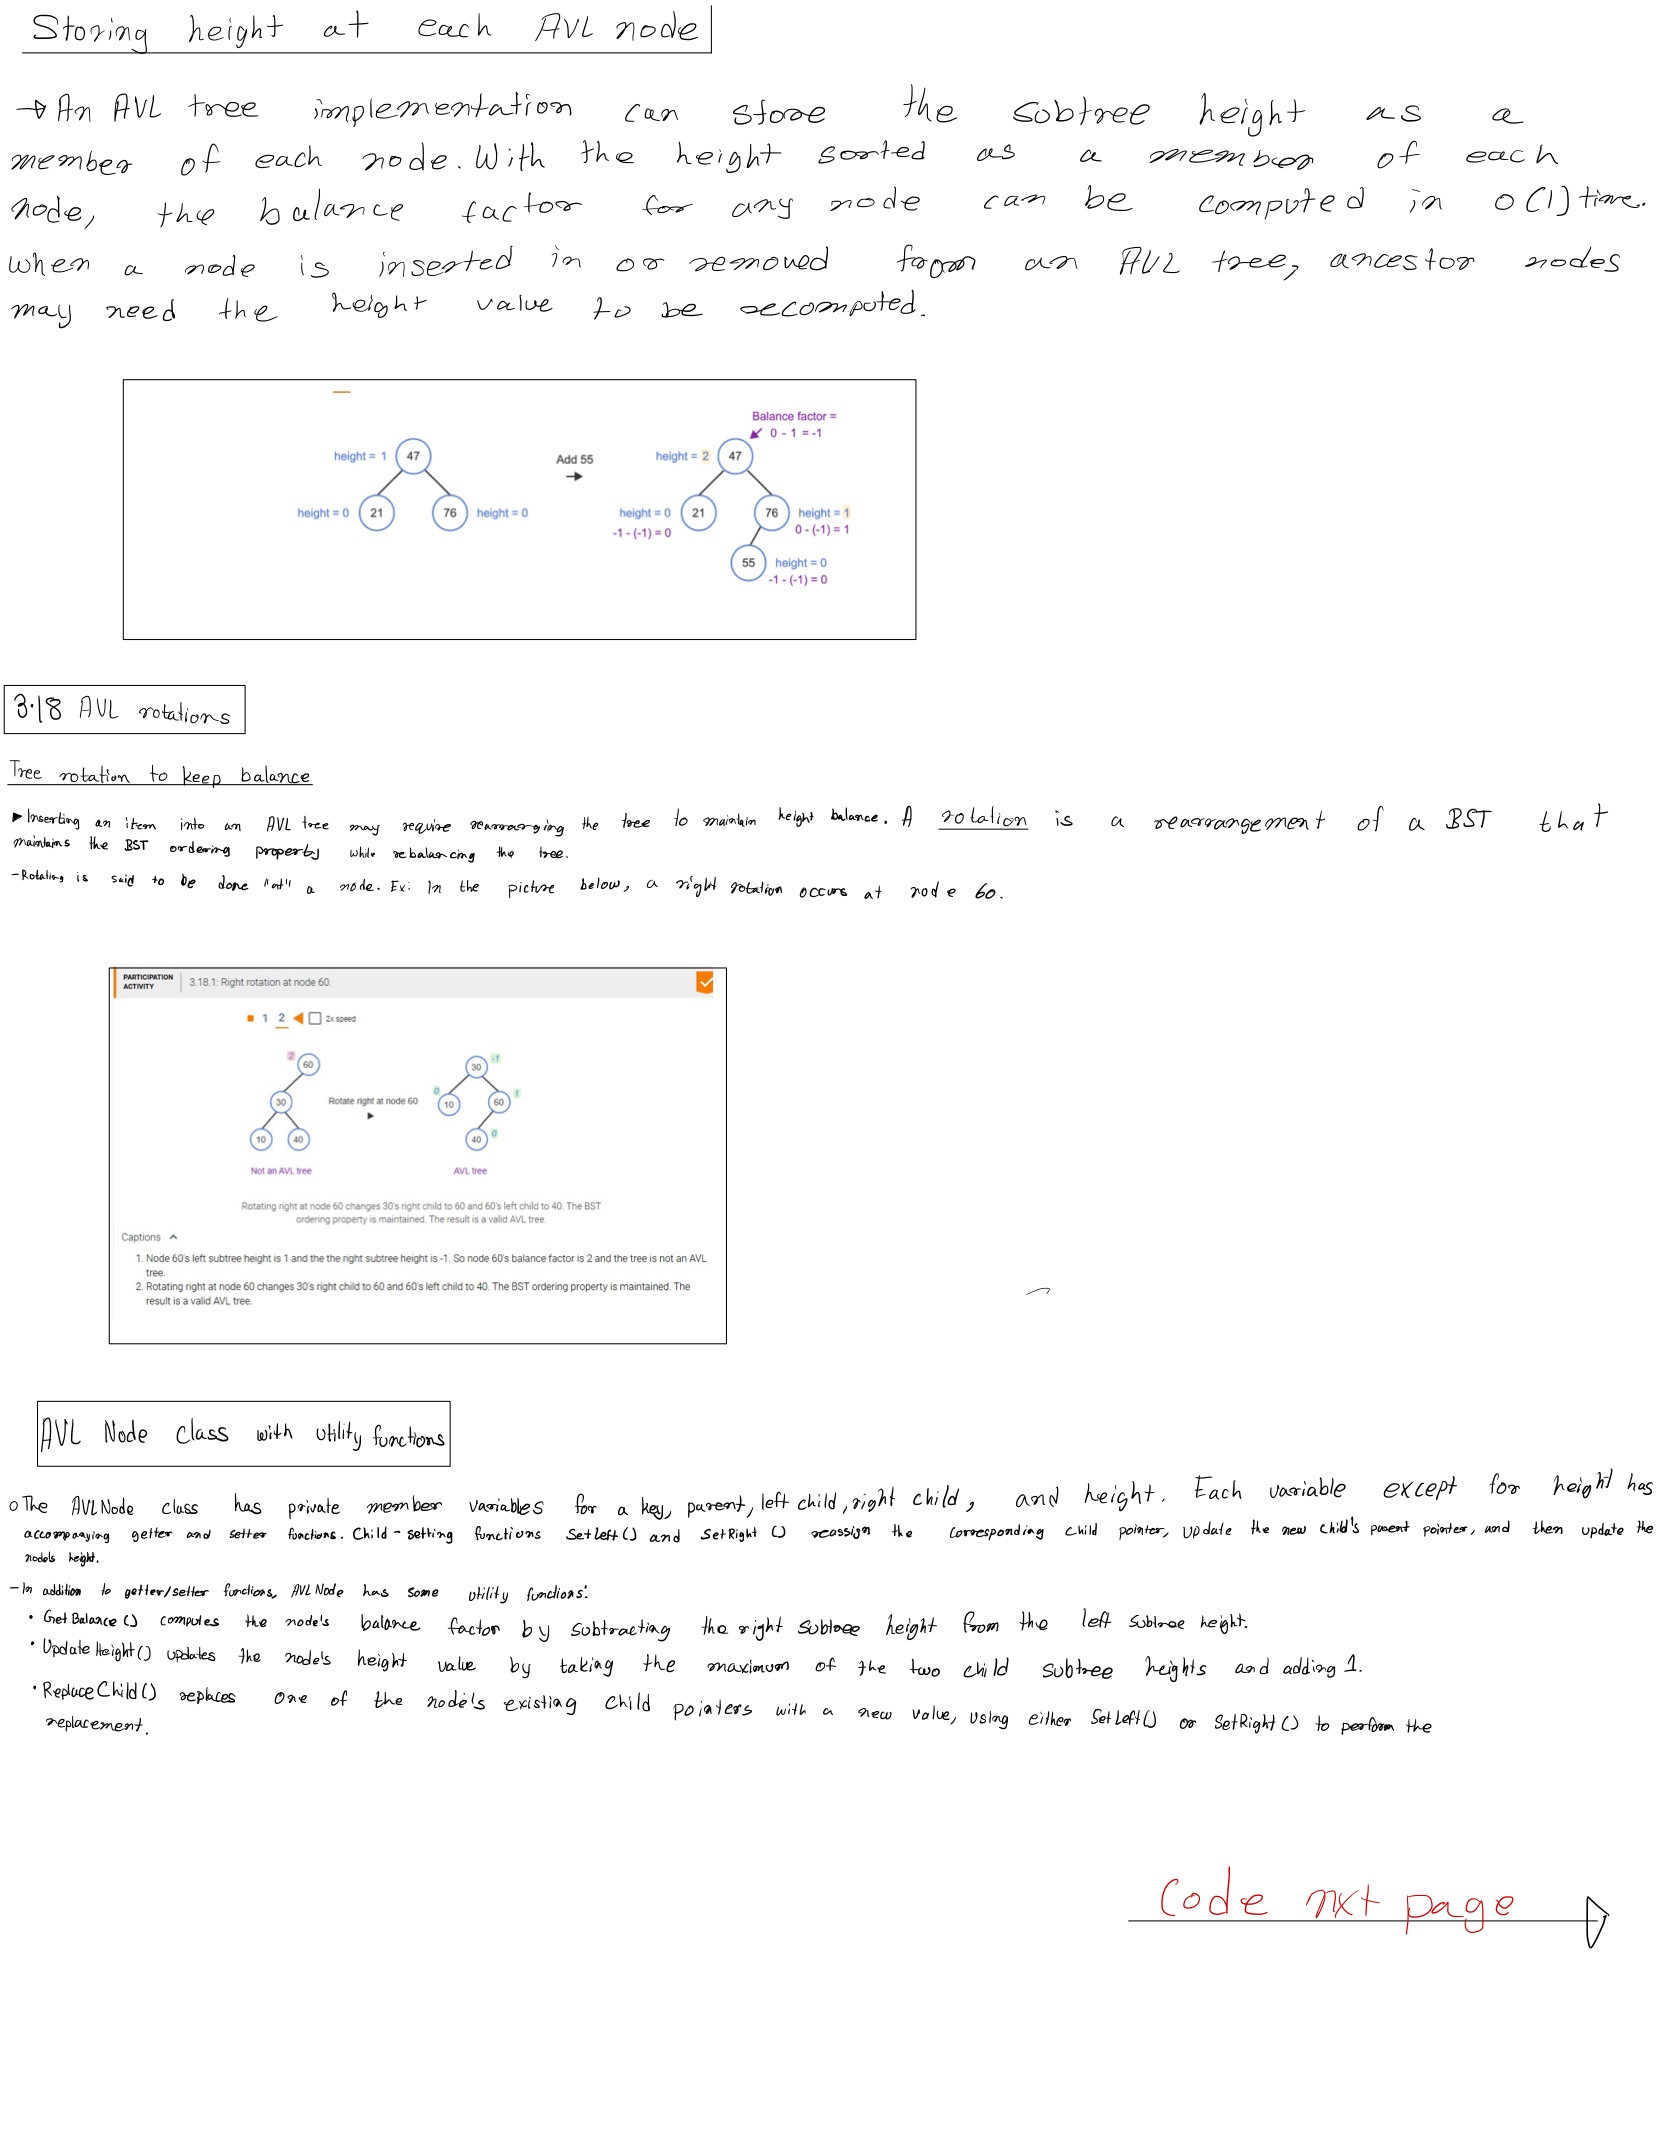 Storing height at each AVL node
→ An AVL tree implementation can store the subtree height as a
member of each node. With the height sorted as a member of each
node, the balance factor for any node can be computed in O(1) time.
When a node is inserted in or removed from an AVL tree, ancestor nodes
may need the height value to be recomputed.
Balance factor =
0 - 1 = -1
height = 1 47
Add 55
height = 2 47
height = 0 21 76 height = 0
height = 0 21 76 height = 1
-1 - (-1) = 0 0 - (-1) = 1
55 height = 0
-1 - (-1) = 0
3.18 AVL rotations
Tree rotation to keep balance
▶ Inserting an item into an AVL tree may require rearranging the tree to maintain height balance. A rotation is a rearrangement of a BST that
maintains the BST ordering property while rebalancing the tree.
- Rotating is said to be done "at" a node. Ex: In the picture below, a right rotation occurs at node 60.
PARTICIPATION
ACTIVITY
3.18.1: Right rotation at node 60.
1 2 2x speed
2 60 30 -1
30 Rotate right at node 60 0 10 60 1
10 40 40 0
Not an AVL tree AVL tree
Rotating right at node 60 changes 30's right child to 60 and 60's left child to 40. The BST
ordering property is maintained. The result is a valid AVL tree.
Captions
1. Node 60's left subtree height is 1 and the the right subtree height is -1. So node 60's balance factor is 2 and the tree is not an AVL
tree.
2. Rotating right at node 60 changes 30's right child to 60 and 60's left child to 40. The BST ordering property is maintained. The
result is a valid AVL tree.
AVL Node class with utility functions
o The AVLNode class has private member variables for a key, parent, left child, right child, and height. Each variable except for height has
accompanying getter and setter functions. Child-setting functions SetLeft() and SetRight() reassign the corresponding child pointer, update the new child's parent pointer, and then update the
node's height.
- In addition to getter/setter functions, AVLNode has some utility functions:
• GetBalance() computes the node's balance factor by subtracting the right subtree height from the left subtree height.
• UpdateHeight() updates the node's height value by taking the maximum of the two child subtree heights and adding 1.
• ReplaceChild() replaces one of the node's existing child pointers with a new value, using either SetLeft() or SetRight() to perform the
replacement.
Code nxt page